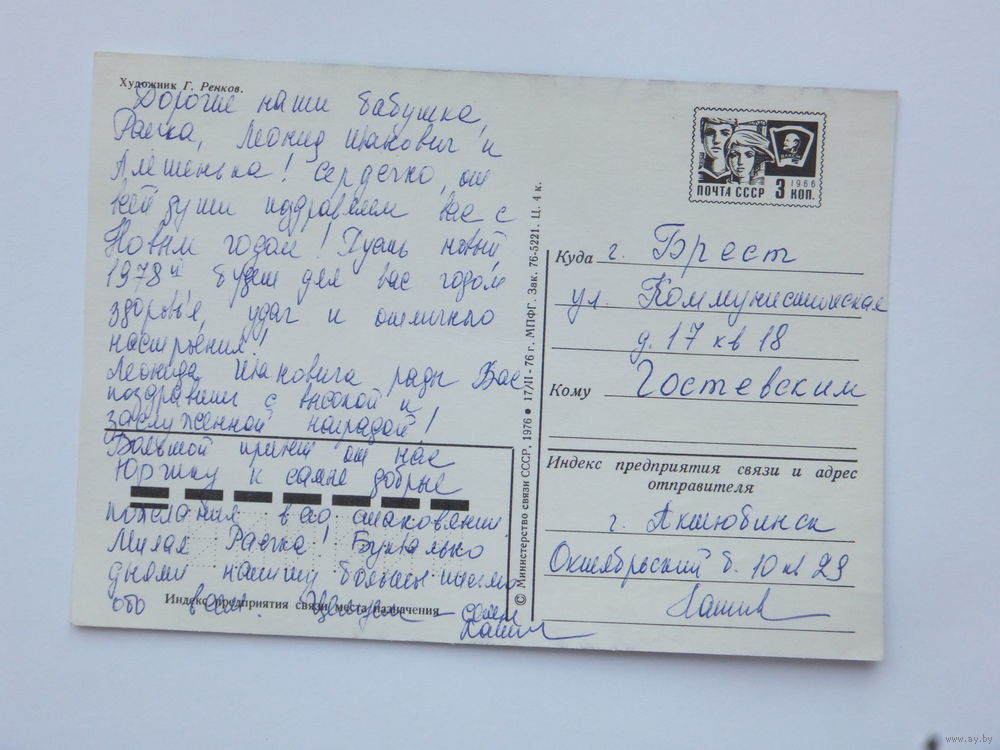 Художник Г. Ренков.
Дорогие наши бабушка,
Раечка, Леонид Исакович и
Алёшенька! Сердечно, от
всей души поздравляем вас с
Новым годом! Пусть новый
1978й будет для вас годом
здоровья, удач и отличного
настроения!
Леонида Исаковича рады Вас
поздравить с высокой и
заслуженной наградой!
Большой привет от нас
Юрчику и самые добрые
пожелания
Милая Раечка! Буквально
днями напишу большое письмо
обо всём. Целуем – семья
ПОЧТА СССР 3 КОП.
1966
Куда г. Брест
ул. Коммунистическая
д. 17 кв 18
Кому Гостевским
Индекс предприятия связи и адрес
отправителя
г. Актюбинск
Октябрьский б. 10 кв 29
Индекс предприятия связи места назначения
© Министерство связи СССР, 1976 ● 17/II-76 г. МПФГ. Зак. 76-5221. Ц. 4 к.
www.ay.by